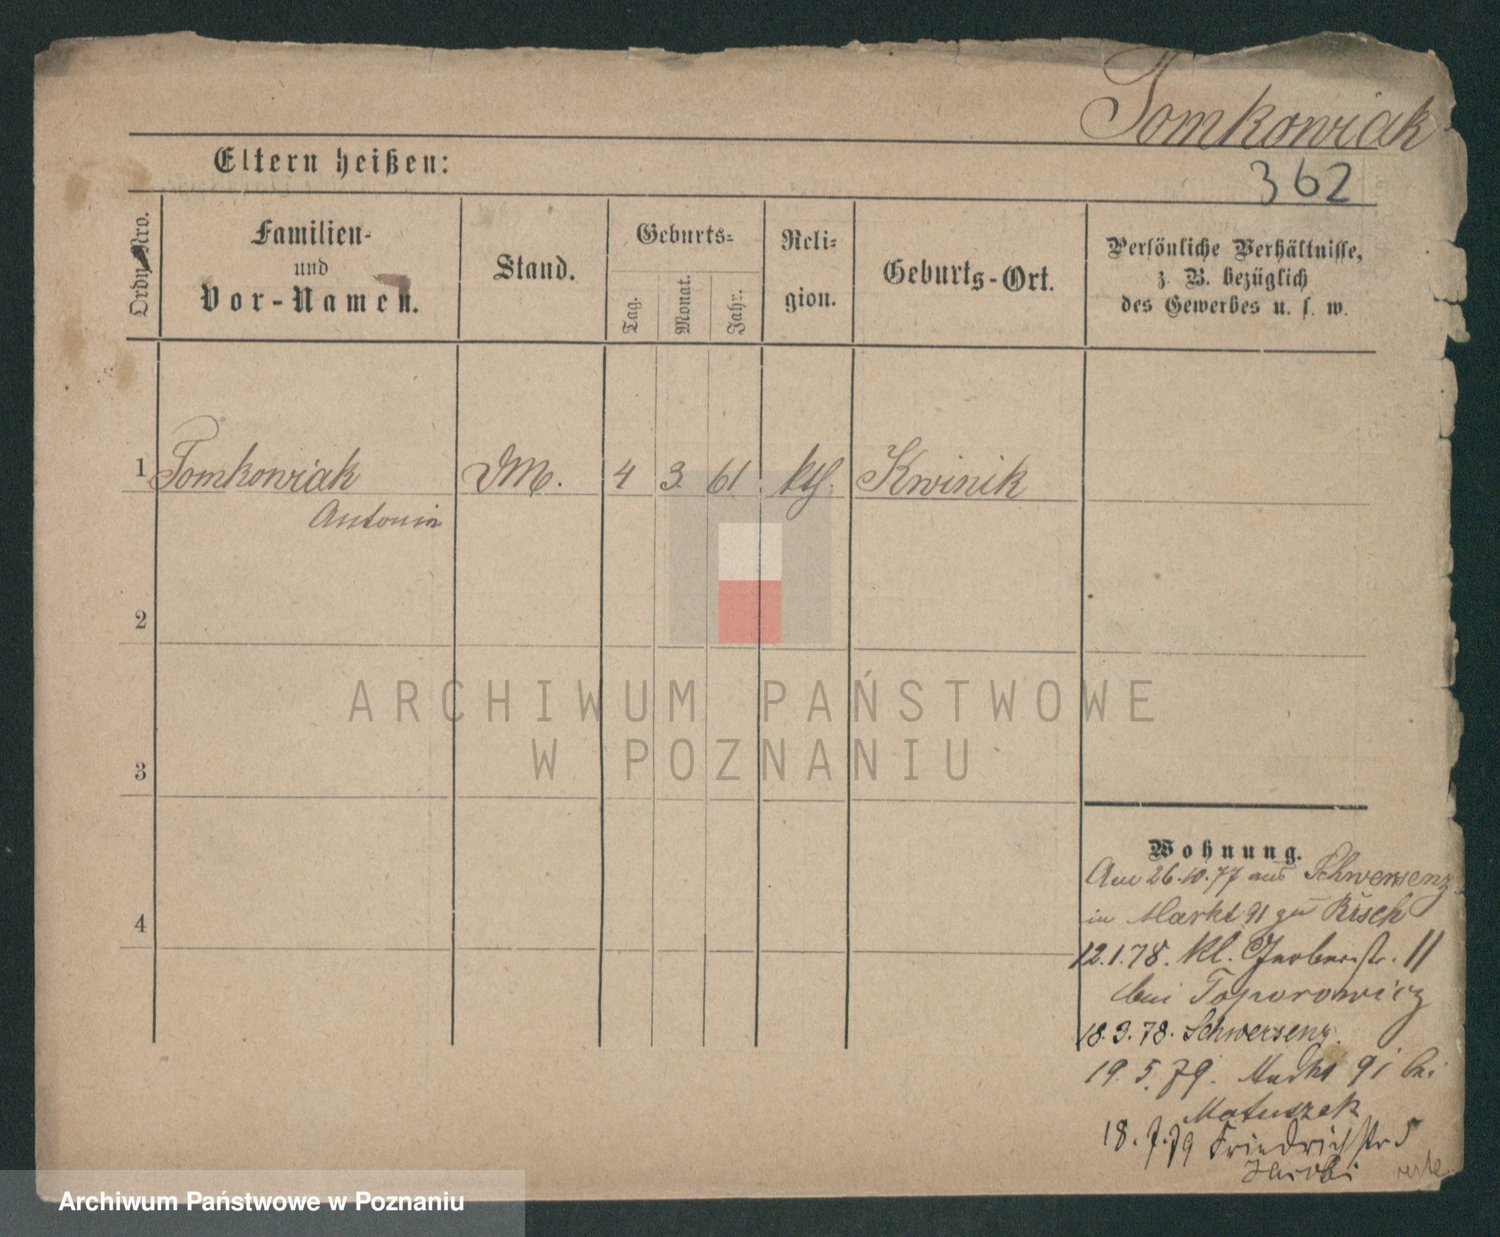 Tomkowiak
362
Eltern heißen:
Ordn. Nro.
Familien-
und
Vor-Namen.
Stand.
Geburts-
Tag.
Monat.
Jahr.
Reli-
gion.
Geburts-Ort.
Persönliche Verhältnisse,
z. B. bezüglich
des Gewerbes u. s. w.
1 Tomkowiak M. 4 3. 61 kth. Kwinik
Antonia
2
3
4
ARCHIWUM PAŃSTWOWE
W POZNANIU
Wohnung.
Am 26.10.77 aus Schwersenz
in Markt 91 zu Risch
12.1.78. kl. Gerberstr. 11
bei Toporowicz
18.3.78. Schwersenz.
19.5.79. Markt 91 bei
Matuszak
18.7.79 Friedrichstr 5
Jacobi
Archiwum Państwowe w Poznaniu